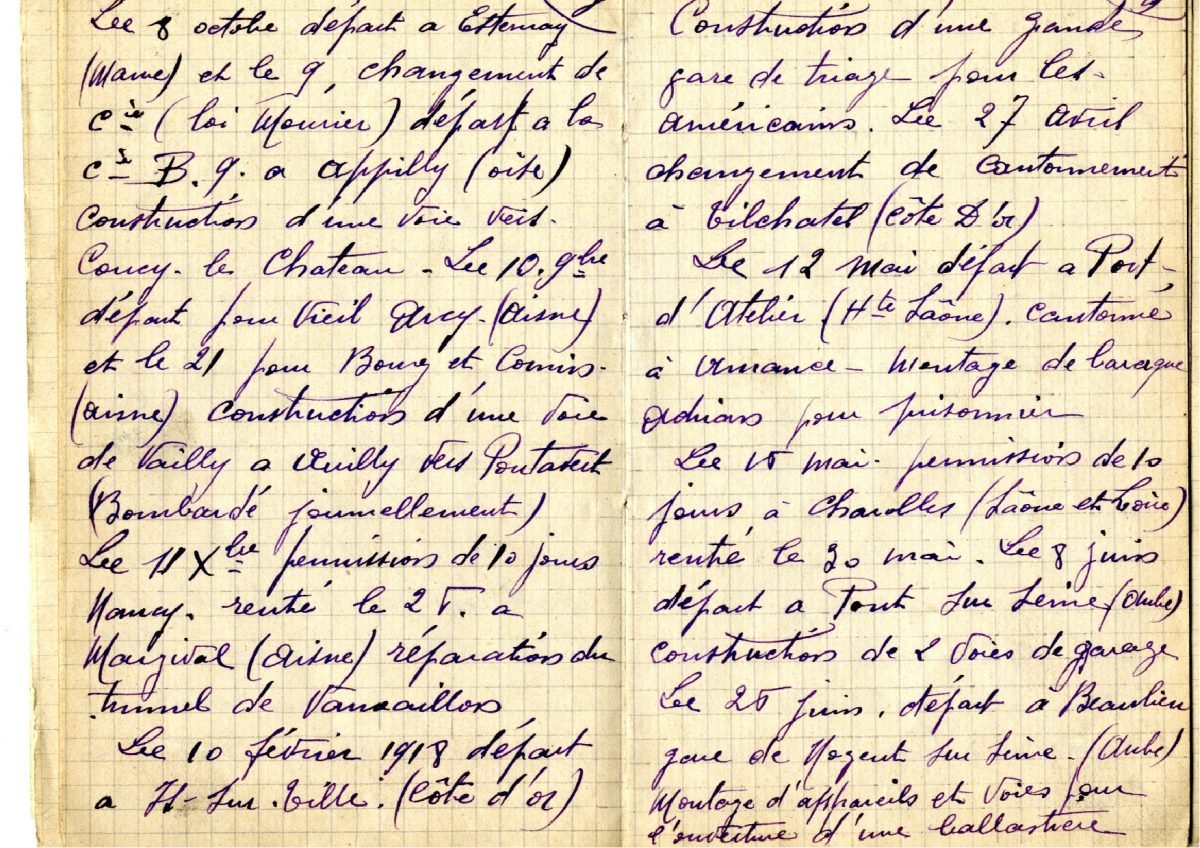 Le 8 octobre départ a Esternay
(Marne) et le 9, changement de
cie (loi Mourier) départ a la
cie B. 9. a Appilly (oise)
Construction d'une voie vers
Coucy-le Chateau - Le 10. 9bre
départ pour Vieil Arcy. (Aisne)
et le 21 pour Bourg et Comin-
(aisne) constructions d'une voie
de Vailly a Œuilly vers Pontavert
(Bombardé journellement)
Le 11 Xbre permission de 10 jours
Nancy. rentré le 25. a
Margival (Aisne) réparation du
tunnel de Vauxaillon
Le 10 février 1918 départ
a Is-sur-Tille. (Côte d'or)
Construction d'une grande
gare de triage pour les
américains. Le 27 Avril
changement de cantonnement
à Tilchatel (Côte D'or)
Le 12 mai départ a Port-
d'Atelier (Hte Saône). cantonné
à Amance - Montage de baraque
Adrian pour prisonnier
Le 15 mai. permission de 10
jours à Charolles (Saône et Loire)
rentré le 30 mai. Le 8 juin
départ a Pont sur Seine (Aube)
construction de 2 voies de garage
Le 25 juin. départ à Beaulieu
gare de Nogent sur Seine. (Aube)
Montage d'appareils et voies pour
l'ouverture d'une ballastière